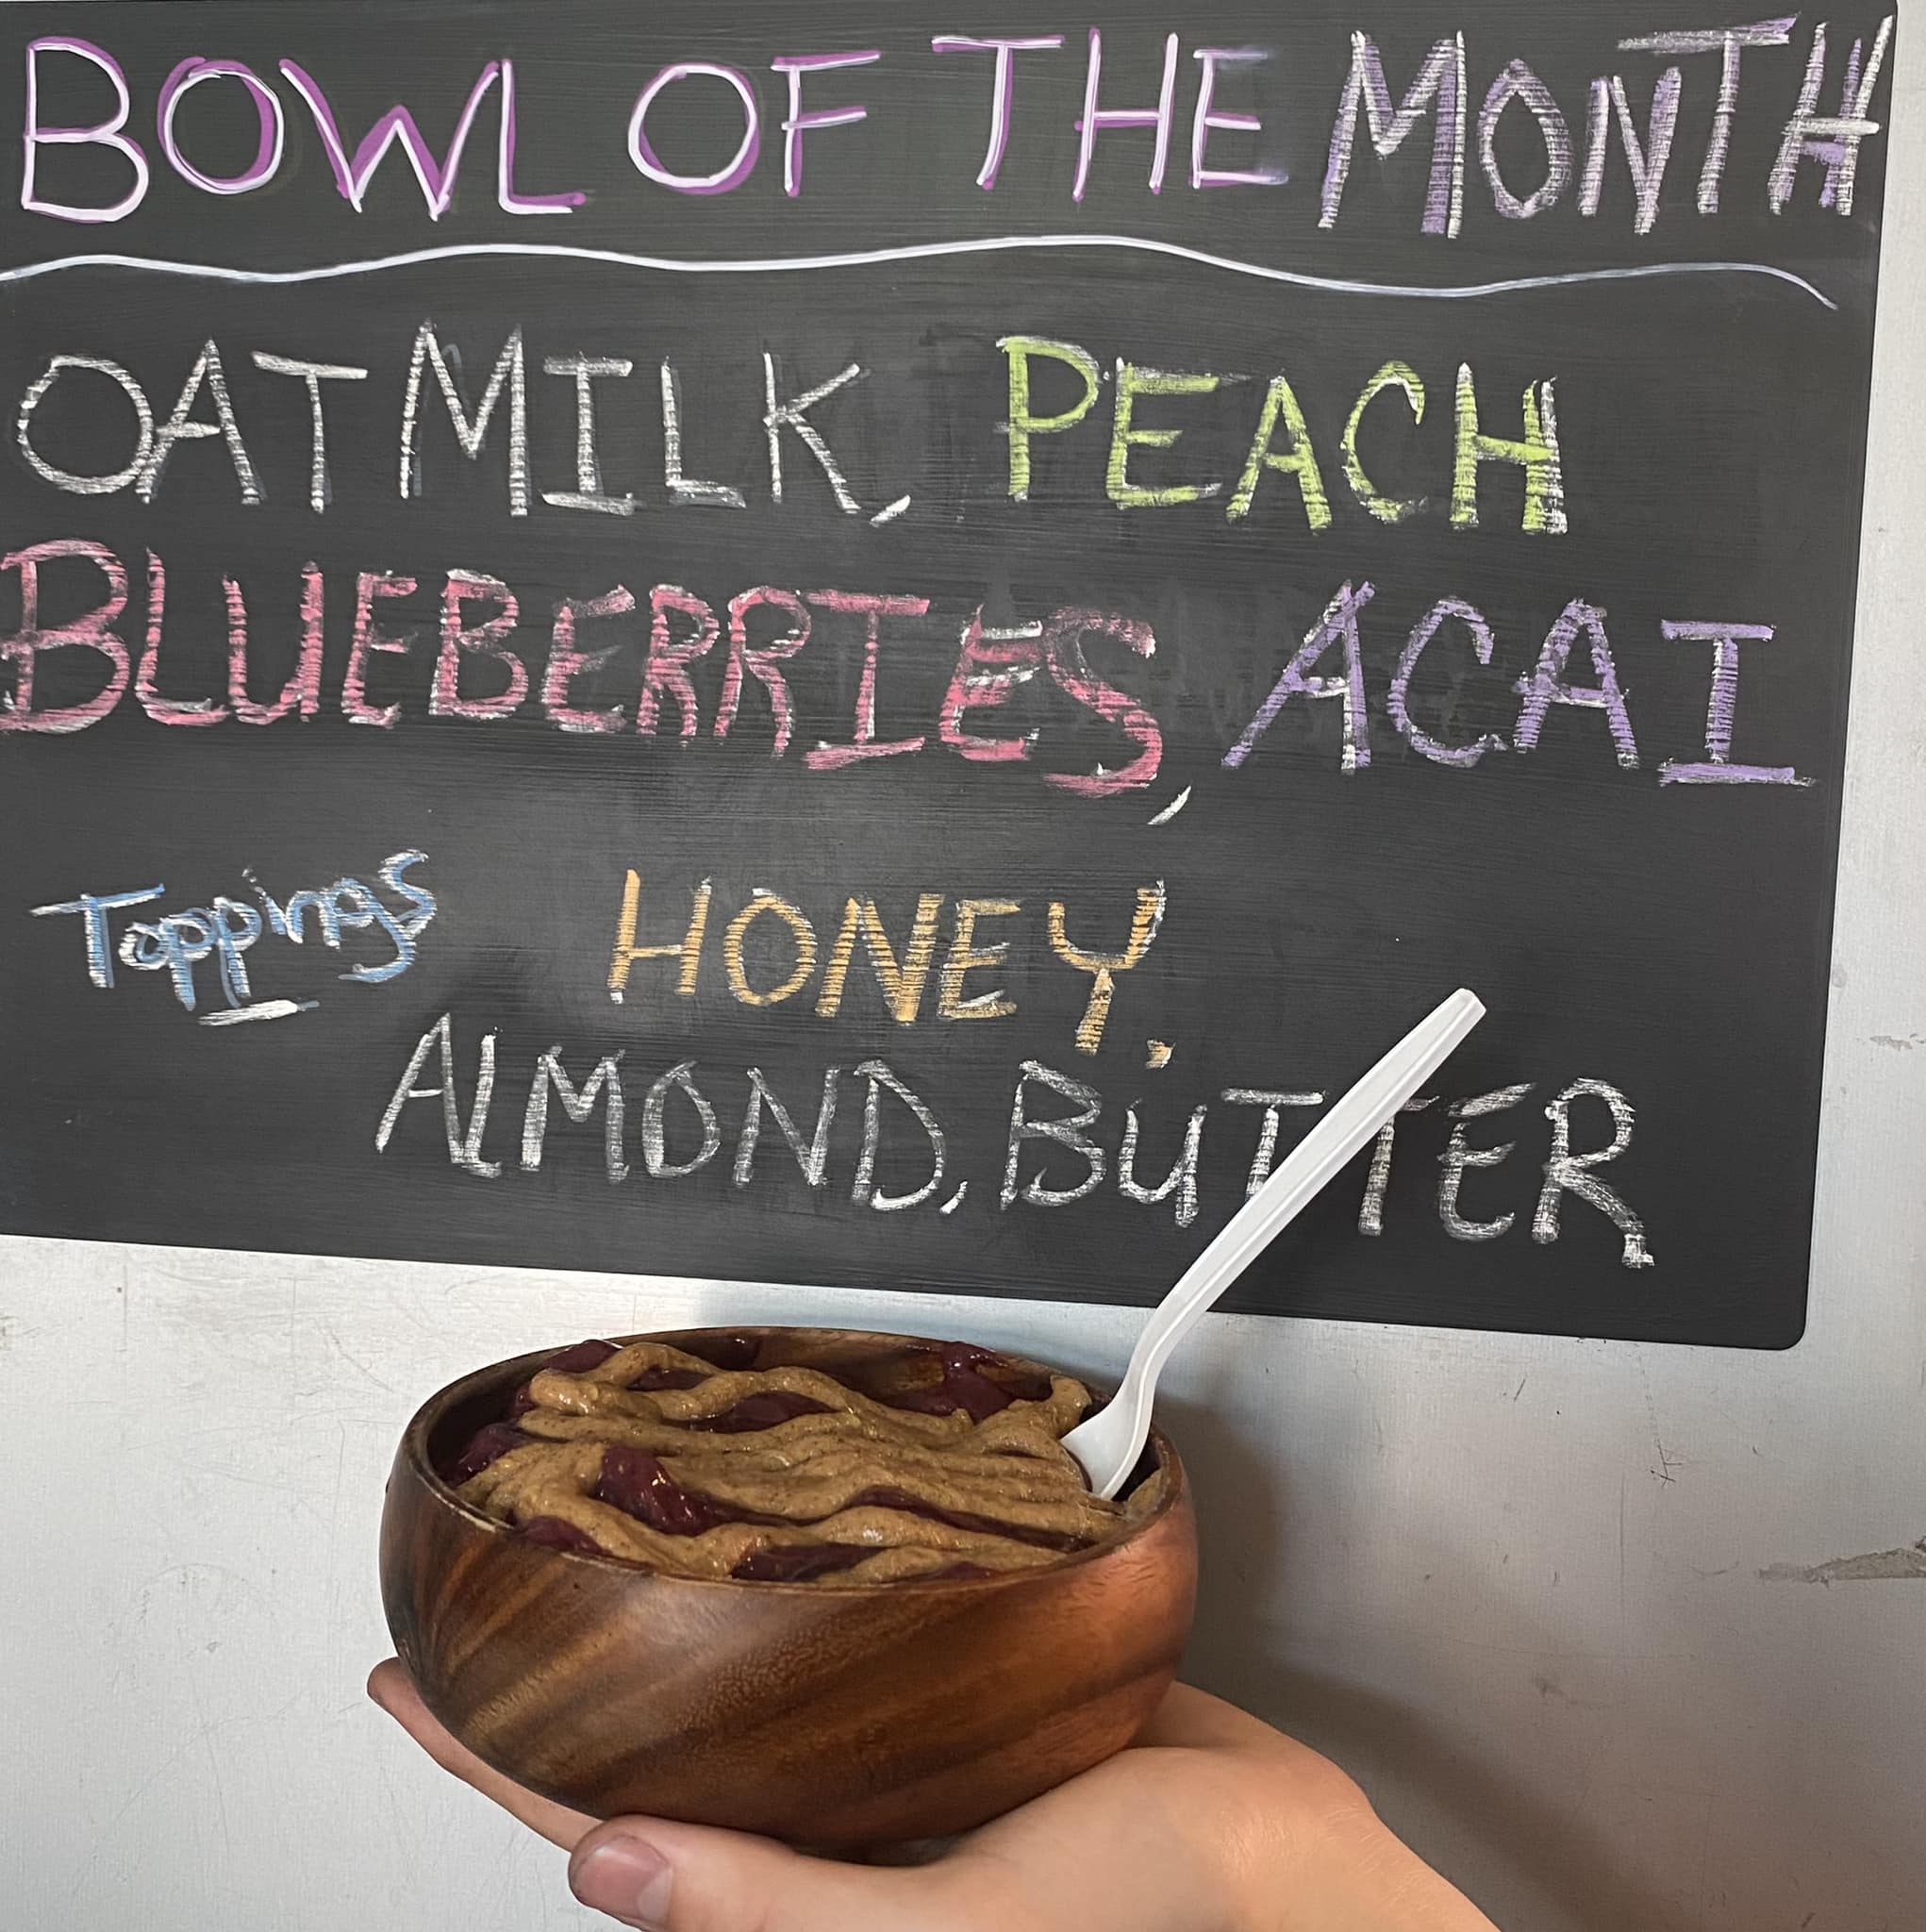 BOWL OF THE MONTH
OAT MILK, PEACH
BLUEBERRIES, ACAI
Toppings HONEY,
ALMOND, BUTTER